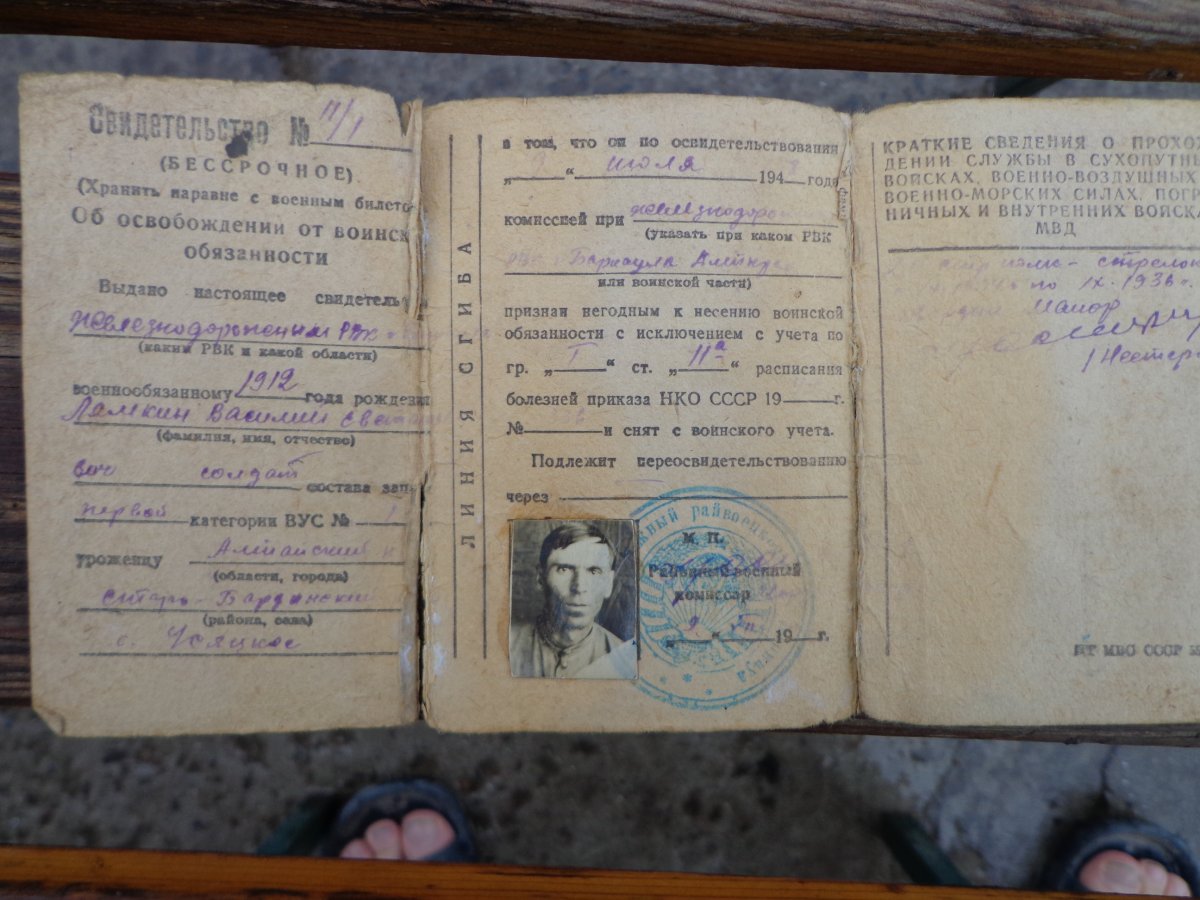 Свидетельство № 11/1
(БЕССРОЧНОЕ)
(Хранить наравне с военным билето
Об освобождении от воинск
обязанности
Выдано настоящее свидетель
железнодорожным РВК
(каким РВК и какой области)
военнообязанному 1912 года рождени
Ламкин Василий
(фамилия, имя, отчество)
солдат состава зап
первой категории ВУС № 1
уроженцу Алтайский
(области, города)
Старо-Бардинский
(района, села)
с. Усяцкое
ЛИНИЯ СГИБА
в том, что он по освидетельствовании
„ “ июля 194 года
комиссией при железнодорожн
(указать при каком РВК
Барнаула
или воинской части)
признан негодным к несению воинской
обязанности с исключением с учета по
гр. „ I “ ст. „ 11а “ расписания
болезней приказа НКО СССР 19 г.
№ и снят с воинского учета.
Подлежит переосвидетельствованию
через
М. П.
Районный военный
комиссар
„ 9 “ 19 г.
райвоенком
КРАТКИЕ СВЕДЕНИЯ О ПРОХОЖ
ДЕНИИ СЛУЖБЫ В СУХОПУТНЫ
ВОЙСКАХ, ВОЕННО-ВОЗДУШНЫХ
ВОЕННО-МОРСКИХ СИЛАХ, ПОГР
НИЧНЫХ И ВНУТРЕННИХ ВОЙСКА
МВД
стрелок
по IX. 1936 г.
майор
МВС СССР